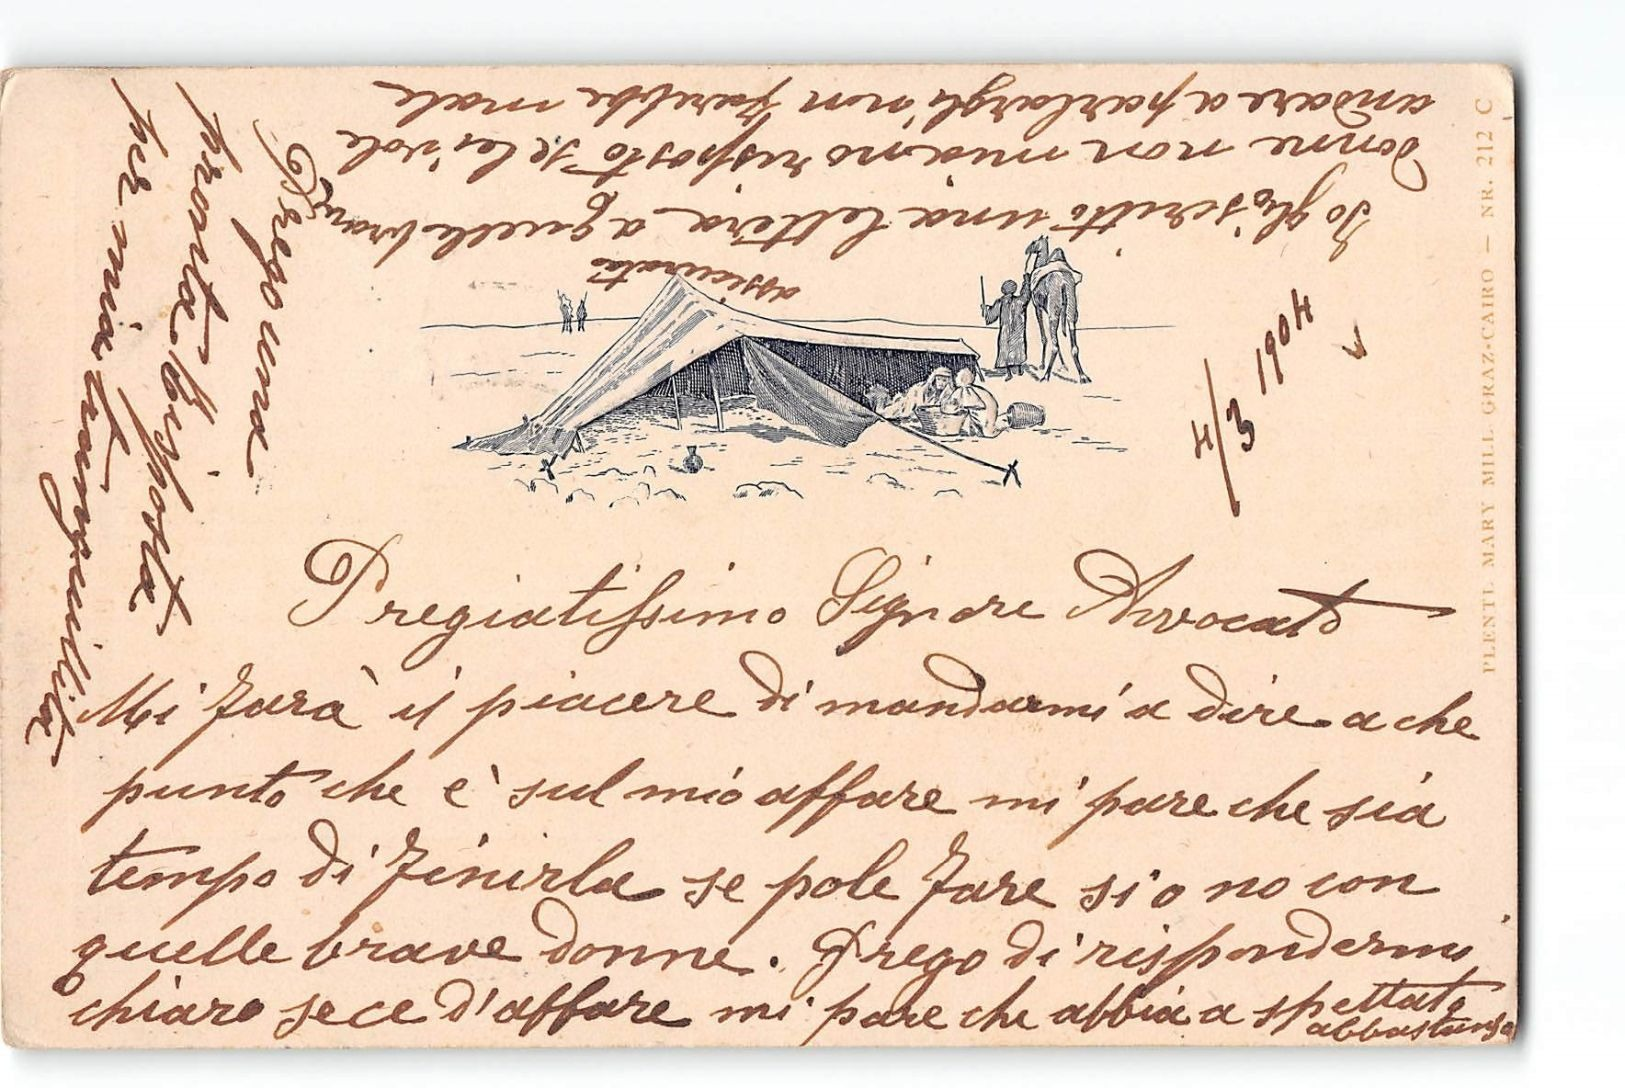 Pregiatissimo Signore Avvocato
Mi farà il piacere di mandarmi a dire a che
punto che è sul mio affare mi pare che sia
tempo di finirla se pole fare si o no con
quelle brave donne. Prego di rispondermi
chiaro se ce d'affare mi pare che abbia aspettato
abbastanza
Io gliò scritto una lettera a quelle brave
assicurata
donne non miàno risposto se lei vole
andare a parlargli non farebbe male
Prego una
pronta risposta
per mia tranquillità
4/3 1904
PLENTL MARY MILL GRAZ-CAIRO — NR. 212 C